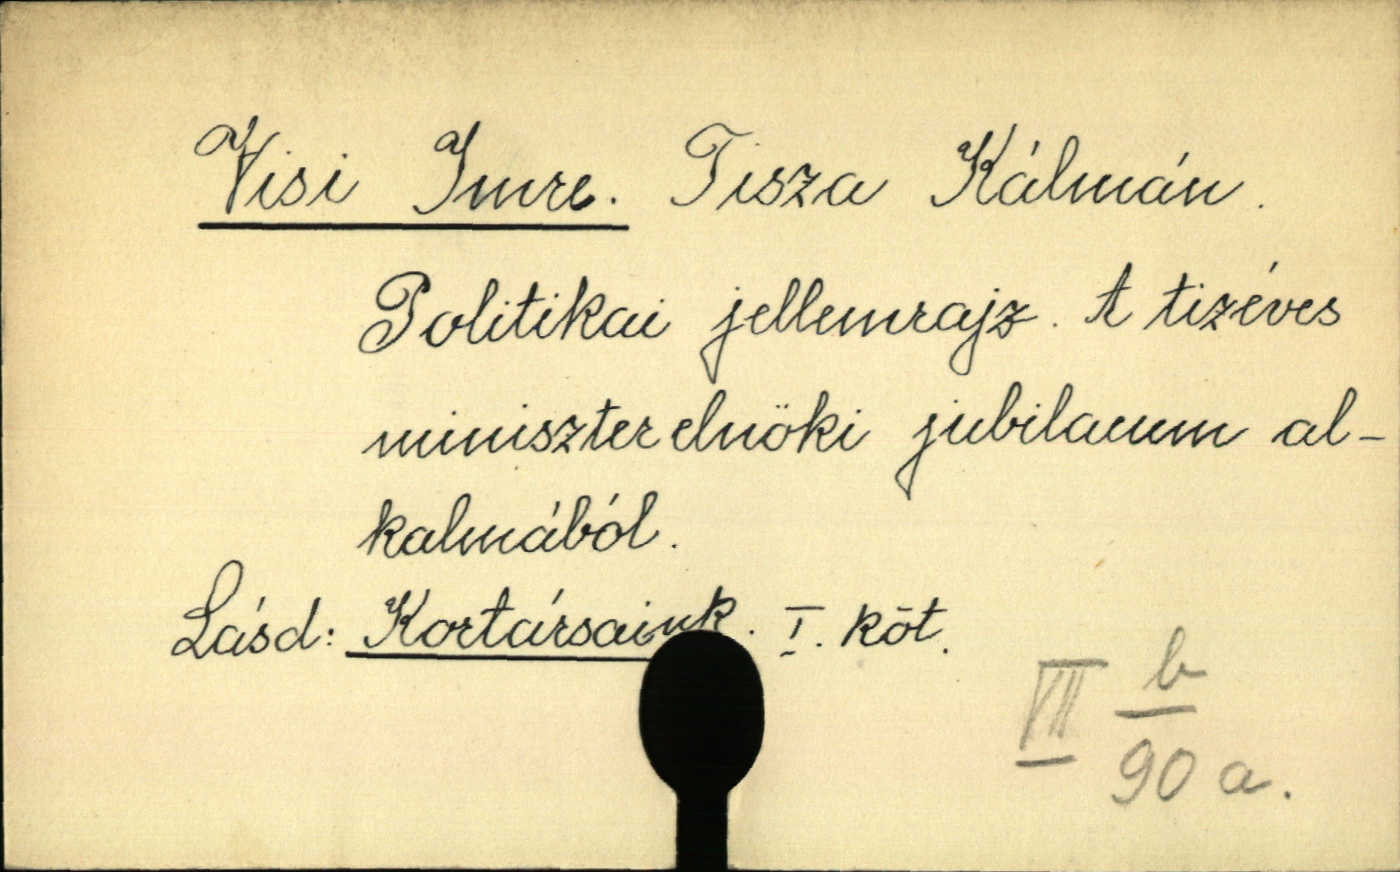 Visi Imre. Tisza Kálmán.
Politikai jellemrajz. A tizéves
miniszterelnöki jubilaeum al-
kalmából.
Lásd: Kortársaink. I. köt.
VII b
90 a.